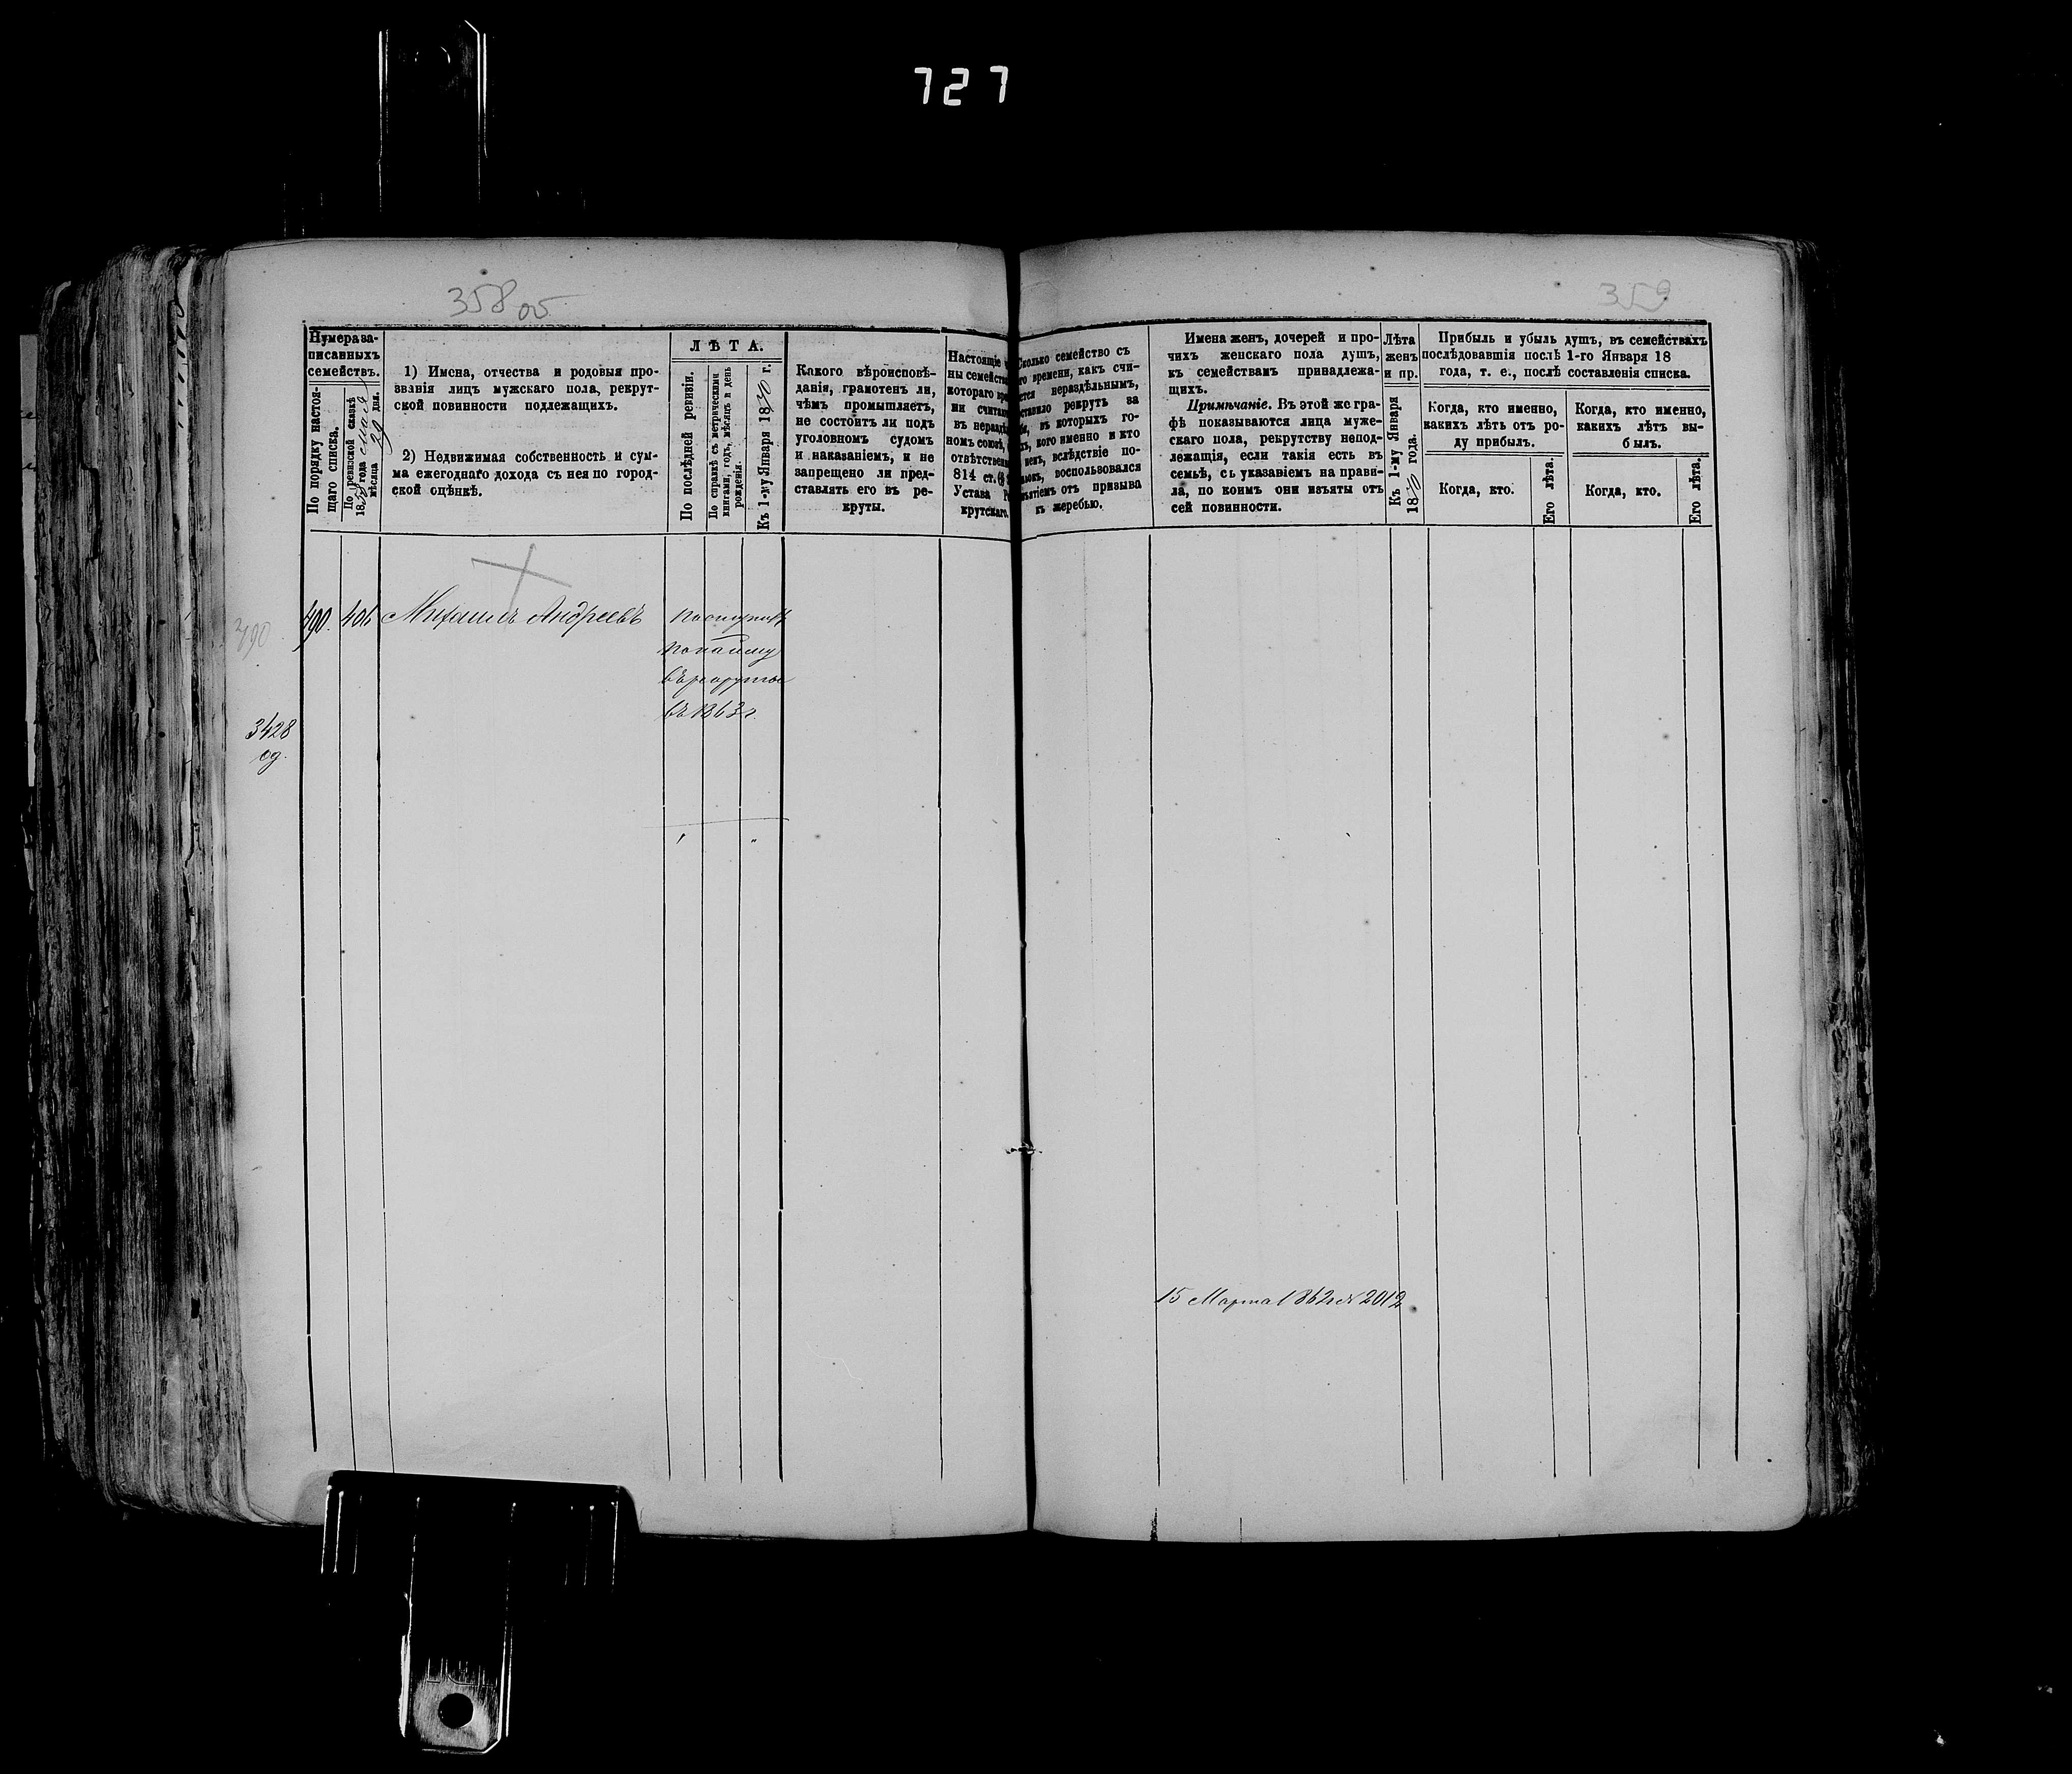 727
358 об
359
Нумера за-
писанныхъ
семействъ.
По порядку настоя-
щаго списка.
По ревизской сказкѣ
18 года
мѣсяца 29 дня.
1) Имена, отчества и родовыя про-
званія лицъ мужскаго пола, рекрут-
ской повинности подлежащихъ.
2) Недвижимая собственность и сум-
ма ежегоднаго дохода съ нея по город-
ской оцѣнкѣ.
ЛѢТА.
По послѣдней ревизіи.
По справкѣ съ метрическими
книгами, годъ, мѣсяцъ и день
рожденія.
Къ 1-му Января 1870 г.
Какого вѣроисповѣ-
данія, грамотенъ ли,
чѣмъ промышляетъ,
не состоитъ ли подъ
уголовномъ судомъ
и наказаніемъ, и не
запрещено ли пред-
ставлять его въ ре-
круты.
Настоящіе
ны семейства
котораго вре
ни считаю
въ неразд
номъ союзѣ,
отвѣтствен
814 ст.
Устава Р
крутскаго.
Сколько семейство съ
го времени, какъ счи-
тается нераздѣльнымъ,
ставило рекрутъ за
въ которыхъ го-
кого именно и кто
нихъ, вслѣдствіе по-
воспользовался
изъятіемъ отъ призыва
къ жеребью.
Имена женъ, дочерей и про-
чихъ женскаго пола душъ,
къ семействамъ принадлежа-
щихъ.
Примѣчаніе. Въ этой же гра-
фѣ показываются лица муже-
скаго пола, рекрутству непод-
лежащія, если такія есть въ
семьѣ, съ указаніемъ на прави-
ла, по коимъ они изъяты отъ
сей повинности.
Лѣта
женъ
и пр.
Къ 1-му Января
1870 года.
Прибыль и убыль душъ, въ семействахъ
послѣдовавшія послѣ 1-го Января 18
года, т. е., послѣ составленія списка.
Когда, кто именно,
какихъ лѣтъ отъ ро-
ду прибылъ.
Когда, кто.
Его лѣта.
Когда, кто именно,
какихъ лѣтъ вы-
былъ.
Когда, кто.
Его лѣта.
490
490. 406 Михаилъ Андреевъ поступилъ
по найму
въ рекруты
въ 1863 г.
3428
од.
15 Марта 1862 г № 2012